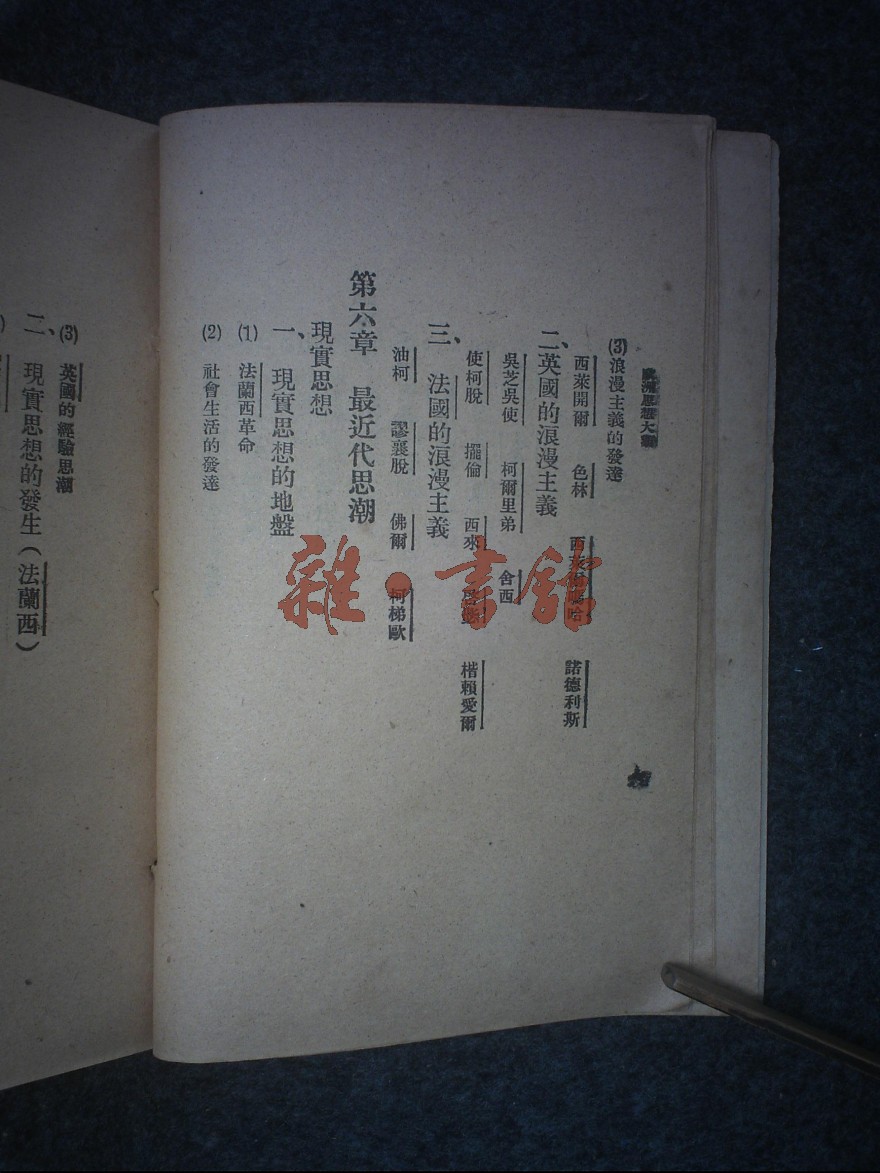 歐洲思想大觀
(3)浪漫主義的發達
西萊開爾 色林 諾德利斯
二、英國的浪漫主義
吳芝吳使 柯爾里弟 舍西
使柯脫 擺倫 西來 楷賴愛爾
三、法國的浪漫主義
油柯 謬襄脫 佛爾 柯梯歐
第六章 最近代思潮
現實思想
一、現實思想的地盤
(1) 法蘭西革命
(2) 社會生活的發達
(3) 英國的經驗思潮
二、現實思想的發生(法蘭西)
雜·書館